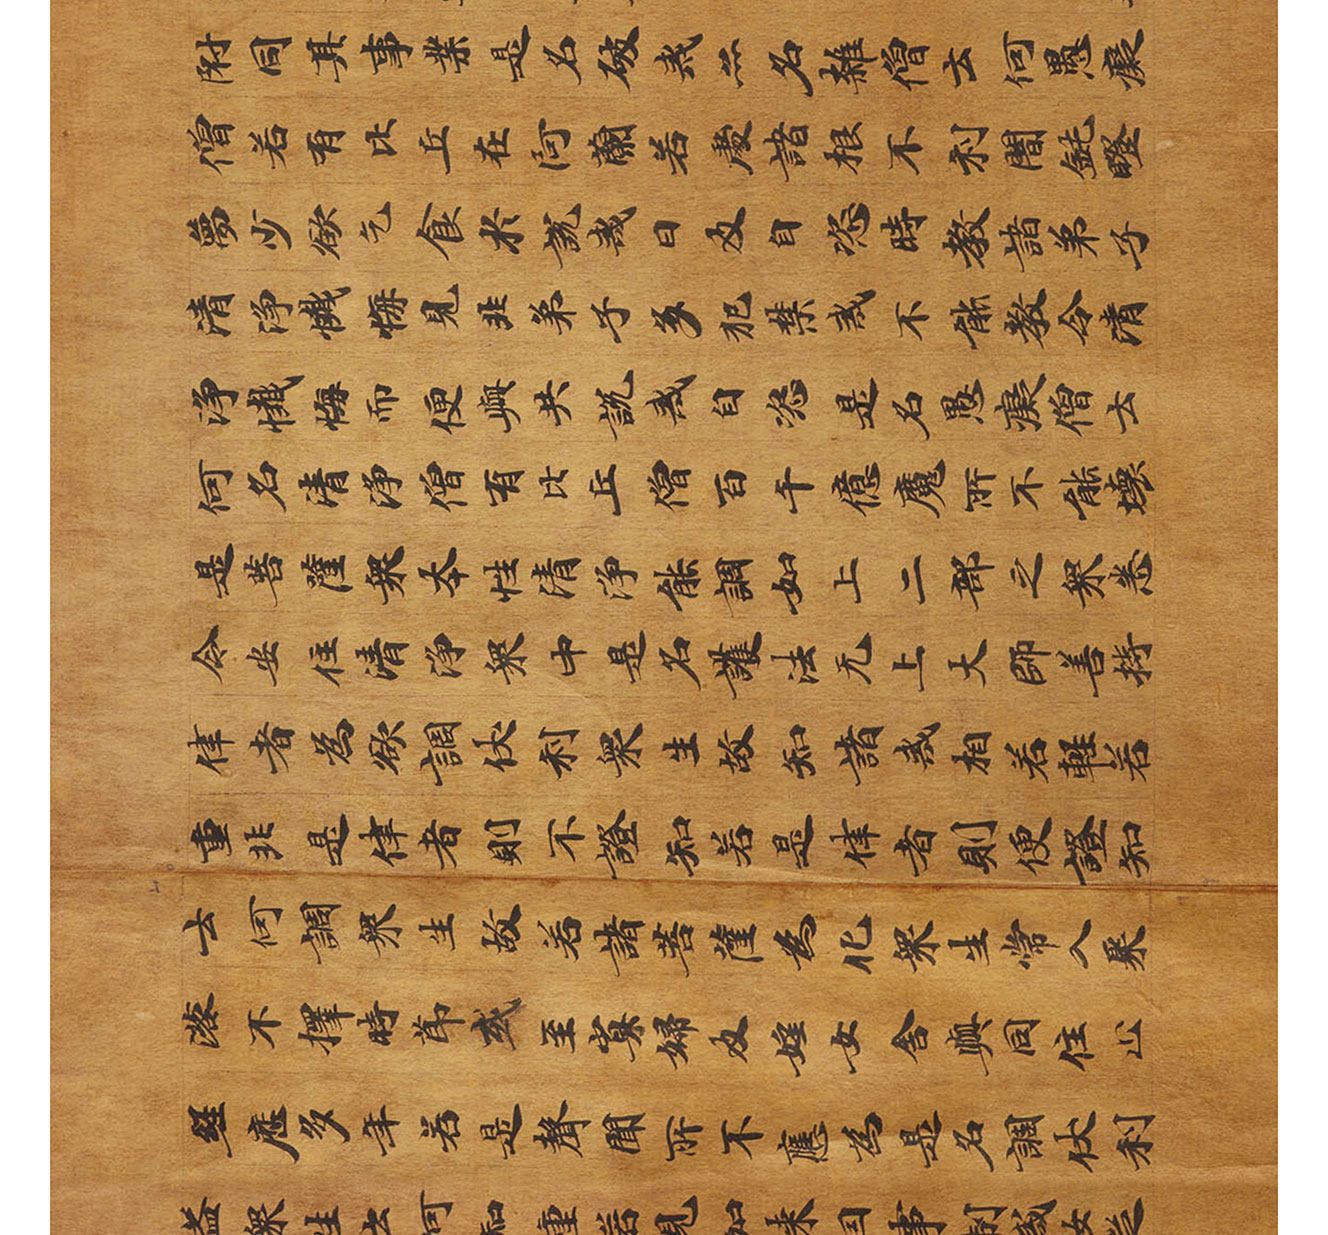 附同其事業是名破戒亦名雜僧云何愚癡
僧若有比丘在阿蘭若處諸根不利闇鈍瞪
瞢少欲乞食於說戒日及自恣時教諸弟子
清淨懺悔見非弟子多犯禁戒不能教令清
淨懺悔而便與共說戒自恣是名愚癡僧云
何名清淨僧有比丘僧百千億魔所不能壞
是菩薩眾本性清淨能調如上二部之眾悉
令安住清淨眾中是名護法无上大師善持
律者為欲調伏利眾生故知諸戒相若輕若
重非是律者則不證知若是律者則便證知
云何調眾生故若諸菩薩為化眾生常入聚
落不擇時節或至寡婦及婬女舍與同住止
經歷多年若是聲聞所不應為是名調伏利
益眾生云何知重若見如來因事制戒汝從